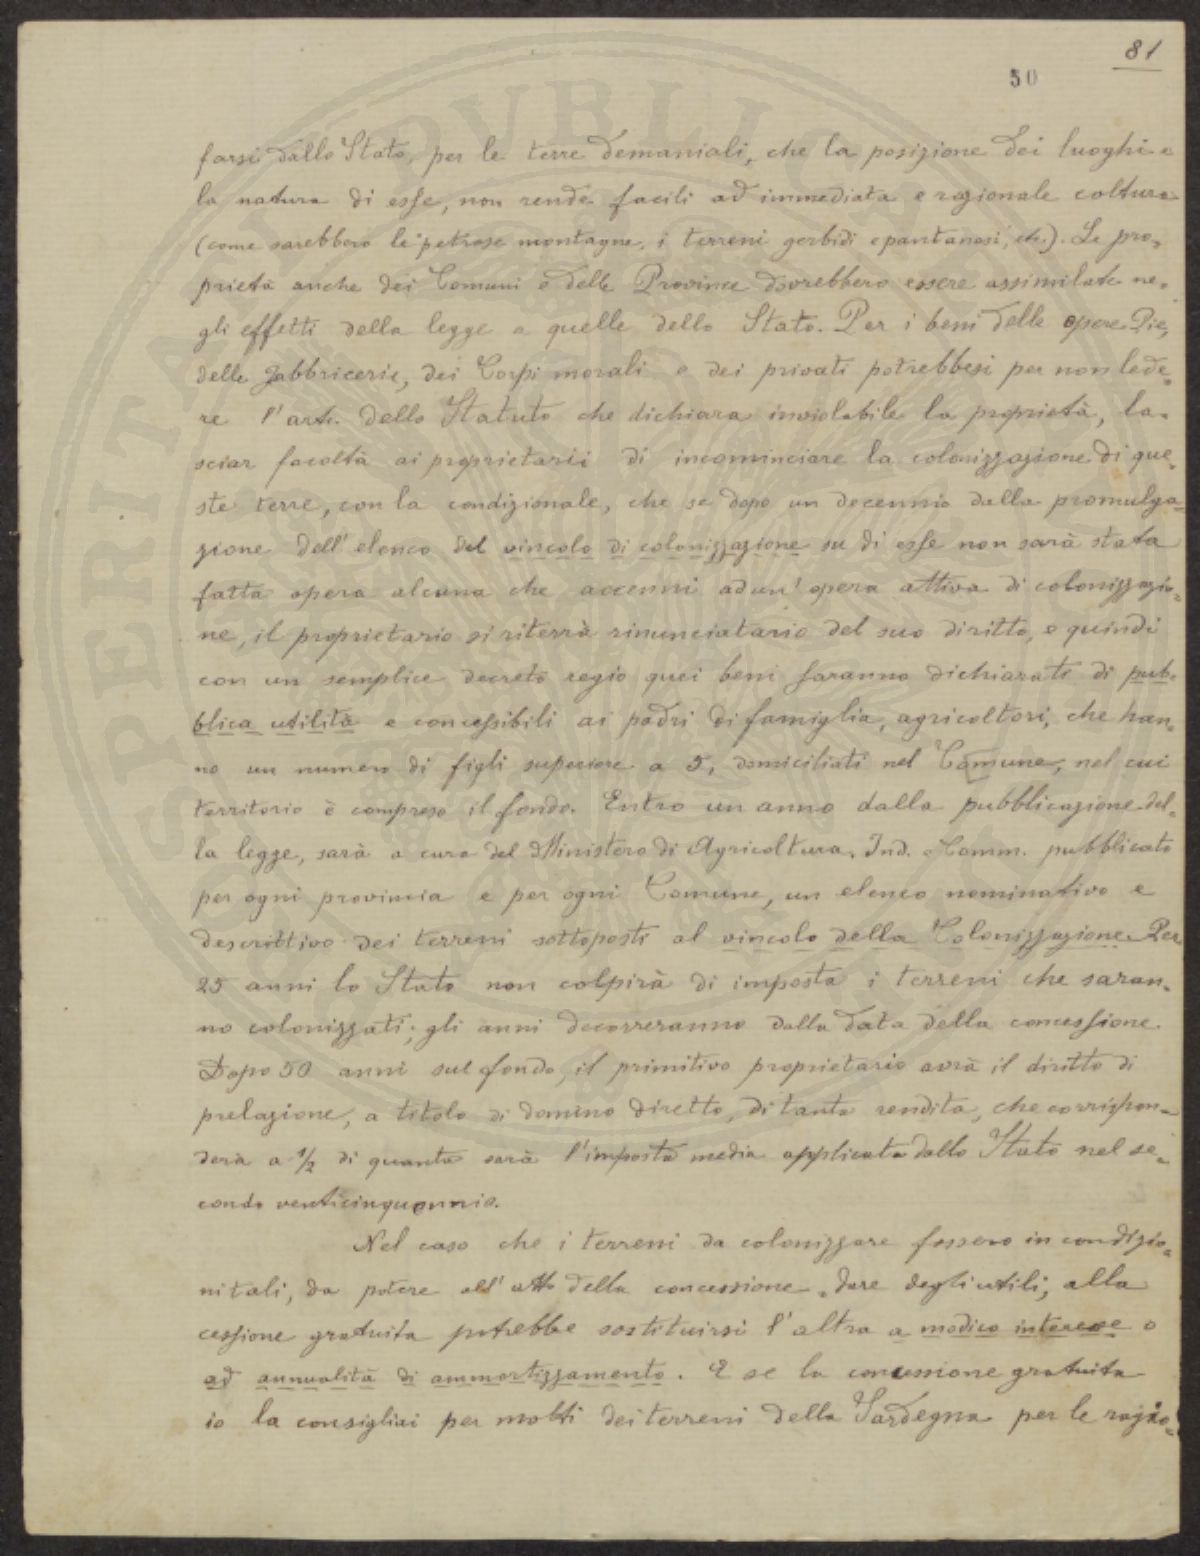 81
50
farsi dallo Stato, per le terre demaniali, che la posizione dei luoghi e
la natura di esse, non rende facili ad immediata e razionale coltura
(come sarebbero le petrose montagne, i terreni gerbidi e pantanosi, etc.). Le pro=
prietà anche dei Comuni e delle Province dovrebbero essere assimilate ne=
gli effetti della legge a quelle dello Stato. Per i beni delle opere Pie,
delle fabbricerie, dei Corpi morali e dei privati potrebbesi per non lede=
re l'art. dello Statuto che dichiara inviolabile la proprietà, la=
sciar facoltà ai proprietarii di incominciare la colonizzazione di que=
ste terre, con la condizionale, che se dopo un decennio dalla promulga=
zione dell'elenco del vincolo di colonizzazione su di esse non sarà stata
fatta opera alcuna che accenni ad un'opera attiva di colonizzazio=
ne, il proprietario si riterrà rinunciatario del suo diritto, e quindi
con un semplice decreto regio quei beni saranno dichiarati di pub=
blica utilità e concessibili ai padri di famiglia, agricoltori, che han=
no un numero di figli superiore a 5, domiciliati nel Comune, nel cui
territorio è compreso il fondo. Entro un anno dalla pubblicazione del=
la legge, sarà a cura del Ministero di Agricoltura, Ind. e Comm. pubblicato
per ogni provincia e per ogni Comune, un elenco nominativo e
descrittivo dei terreni sottoposti al vincolo della Colonizzazione. Per
25 anni lo Stato non colpirà di imposta i terreni che saran=
no colonizzati; gli anni decorreranno dalla data della concessione.
Dopo 50 anni sul fondo, il primitivo proprietario avrà il diritto di
prelazione, a titolo di domino diretto, di tanta rendita, che corrispon=
derà a 1/2 di quanta sarà l'imposta media applicata dallo Stato nel se=
condo venticinquennio.
Nel caso che i terreni da colonizzare fossero in condizio=
ni tali, da potere all'atto della concessione, dare degli utili, alla
cessione gratuita potrebbe sostituirsi l'altra a modico interesse o
ad annualità di ammortizzamento. E se la concessione gratuita
io la consigliai per molti dei terreni della Sardegna per le ragio=